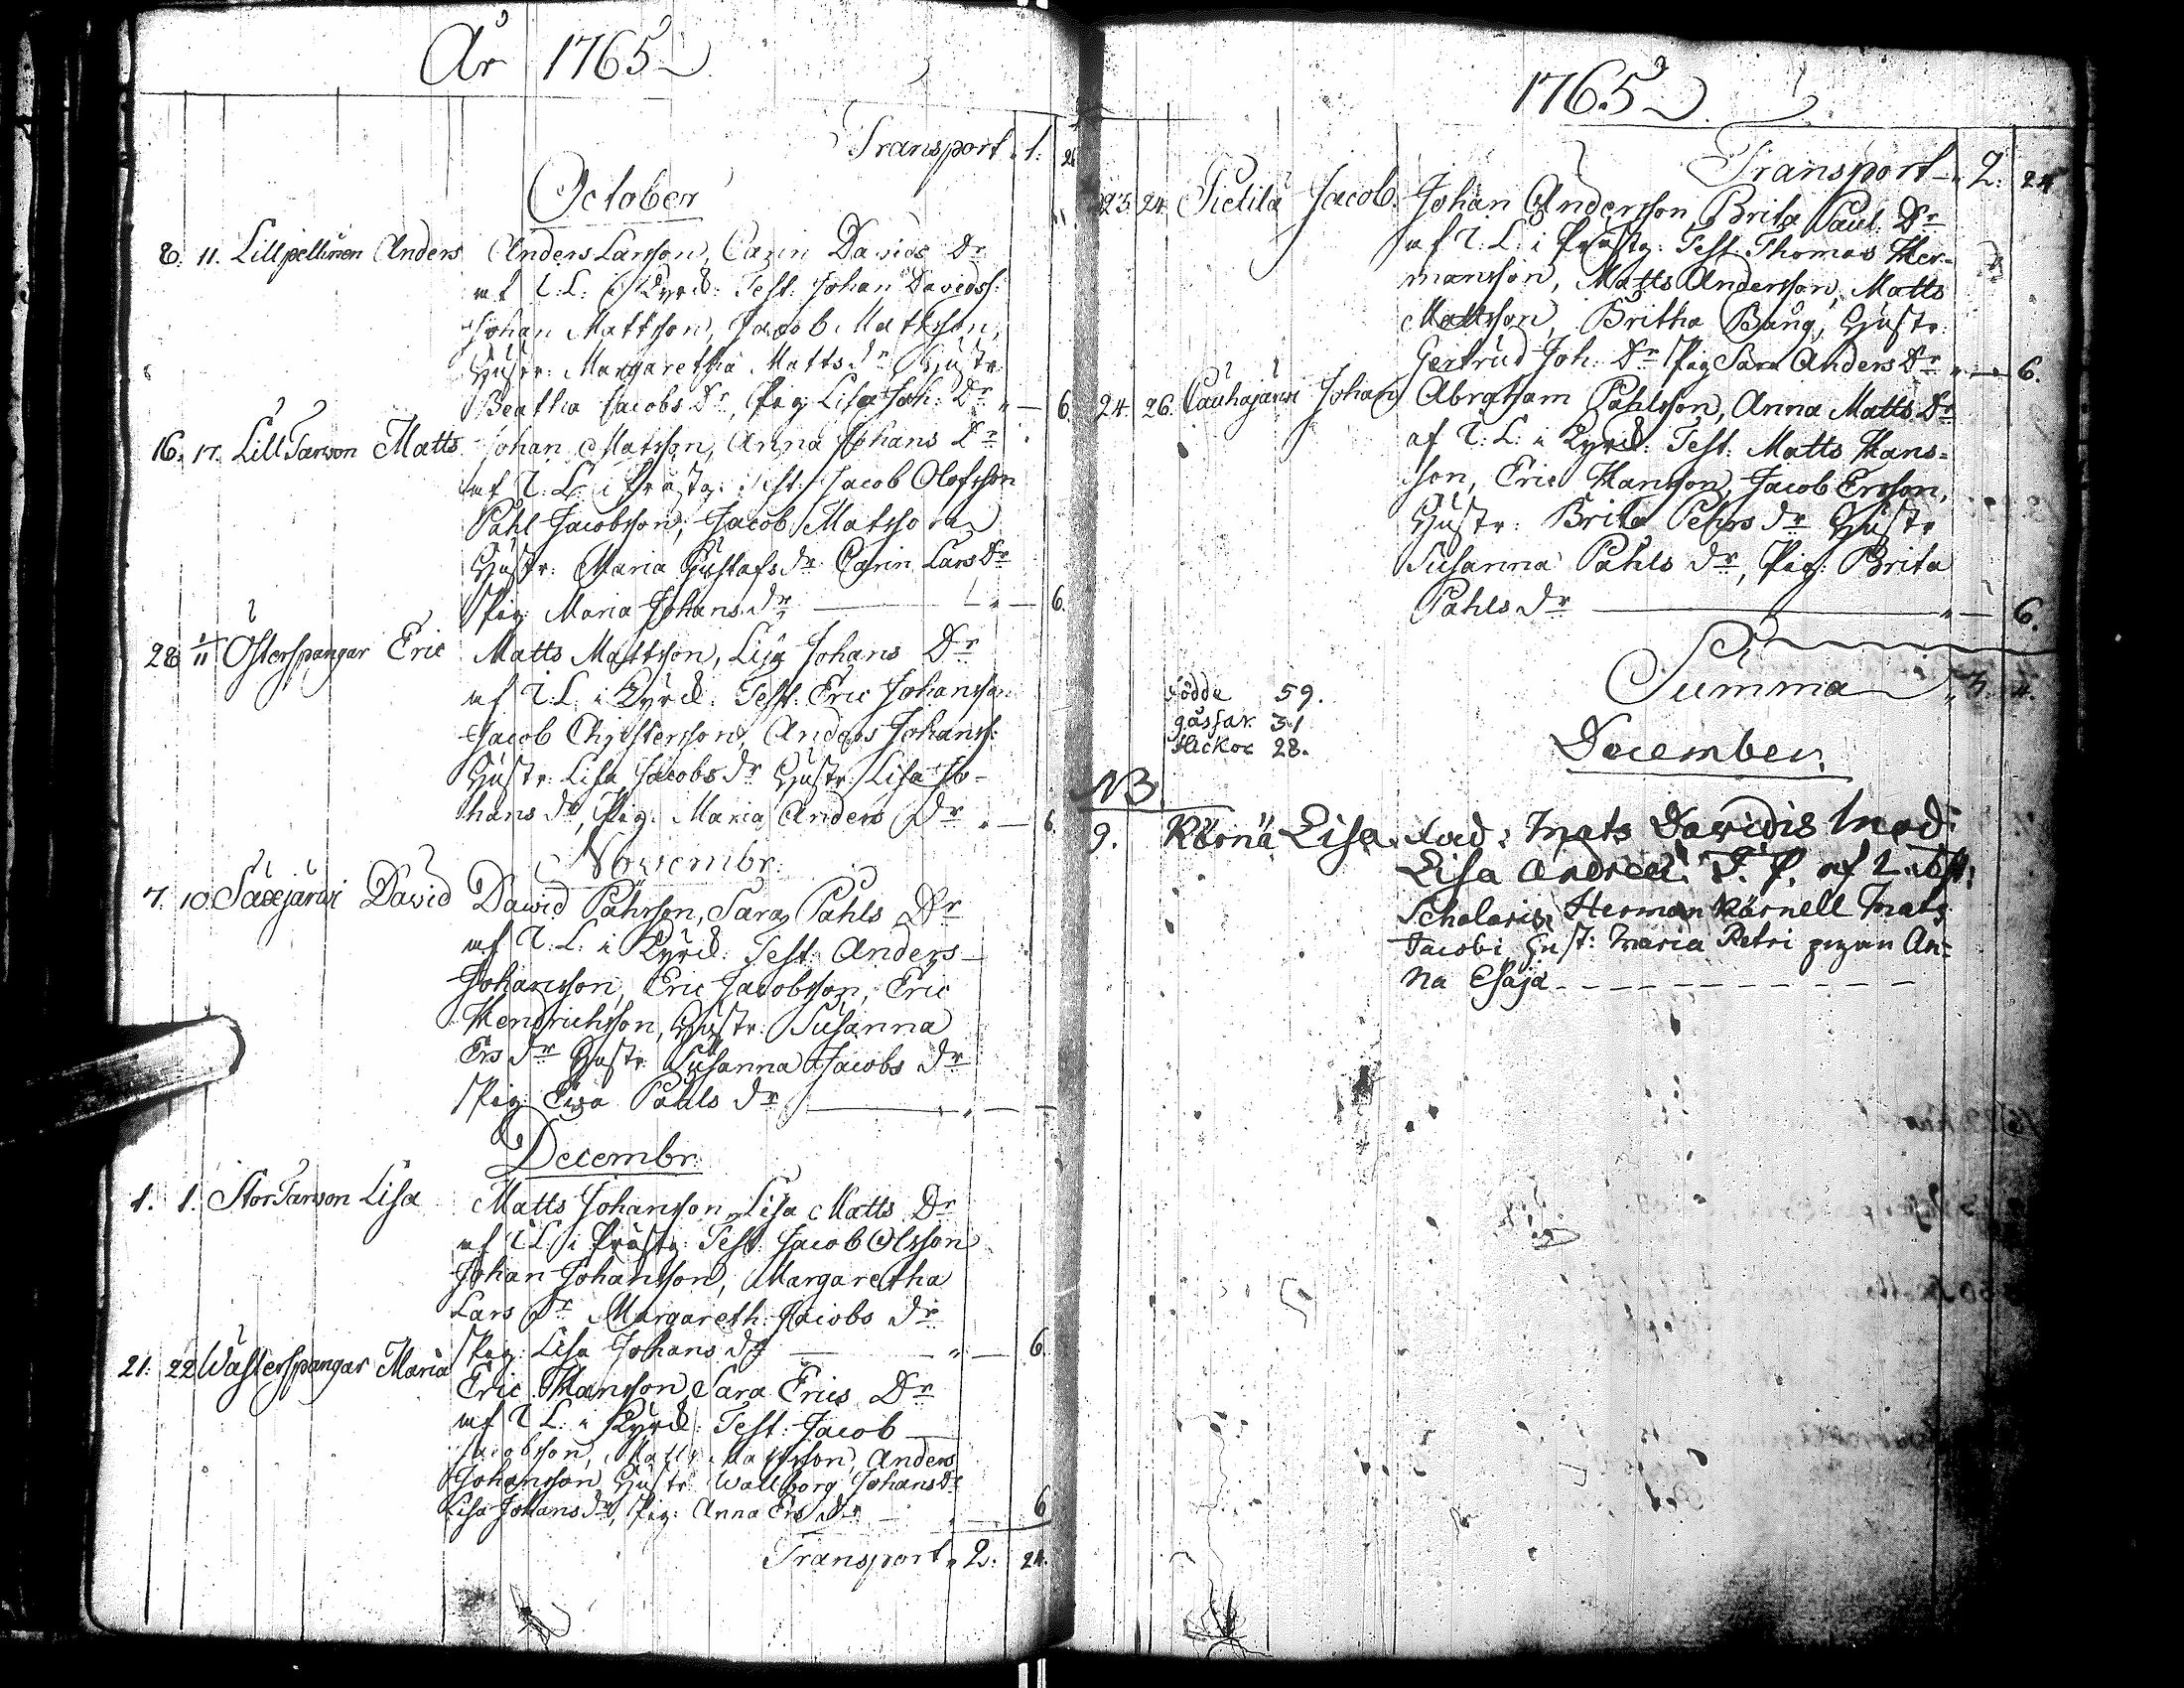 År 1765
Transport 1.
October
8. 11. Lillpellinen Anders Anders Larsson, Carin Davids Dr
af I. L. i Kyrck: Test: Johan Davidss:
Johan Mattsson, Jacob Mattsson,
Hustr: Margaretha Matts dr Hustr
Beatha Jacobs Dr, Pig: Lisa Joh: Dr 6.
16. 17. Lill Tarvon Matts Johan Matsson, Anna Johans Dr
af I. L. i Prästg: Test: Jacob Olofsson
Påhl Jacobsson, Jacob Matsson
Hustr: Maria Gustafs dr Carin Lars Dr
Pig: Maria Johans dr 6.
28 1/11 Österspangar Eric Matts Mattsson, Lisa Johans Dr
af I. L. i Kyrck: Test: Eric Johansson
Jacob Christersson, Anders Johanss:
Hustr: Lisa Jacobs dr Hustr: Lisa Jo-
hans dr, Pig: Maria Anders Dr 6.
Novembr:
7. 10. Sääxjärwi David David Påhlsson, Sara Påhls Dr
af I. L. i Kyrck: Test: Anders
Johansson, Eric Jacobsson, Eric
Hendrichsson, Hustr: Susanna
Ers dr Hustr Susanna Jacobs dr
Pig: Ewa Påhls dr
Decembr:
1. 1. Stor Tarvon Lisa Matts Johansson, Lisa Matts Dr
af I. L. i Prästg: Test: Jacob Olsson
Johan Johansson, Margaretha
Lars Dr Margareth: Jacobs dr
Pig: Lisa Johans dr 6.
21. 22 Wästerspangar Maria Eric Hansson, Sara Erics Dr
af I. L. i Kyrck: Test: Jacob
Jacobsson, Matts Mattsson, Anders
Johansson, Hustr Wallborg Johans Dr
Lisa Johans dr, Pig: Anna Ers dr 6
Transport 2. 24.
1765
Transport 2. 24
23. 24. Pietilä Jacob. Johan Andersson Brita Paul: Dr
af I. L. i Prästg: Test Thomas Her-
mansson, Matts Andersson, Matts
Mattsson, Britha Bång, Hustr:
Gertrud Joh: Dr Pig Sara Anders Dr 6.
24. 26. Cauhajärwi Johan Abraham Påhlsson, Anna Matts Dr
af I. L. i Kyrck: Test: Matts Hans-
son, Eric Hansson, Jacob Ersson,
Hustr: Brita Pehrs dr Hustr
Susanna Påhls dr, Pig: Brita
Påhls dr 6.
Summa 3. 4.
födde 59.
gåssar 31
flickor 28.
December.
NB
9. Körnä Lisa. fad: Mats Davidis Mod:
Lisa Andreæ.
Scholaris, Herman Kärnell Mats
Jacobi Hust: Maria Petri pigan An-
na Esaja